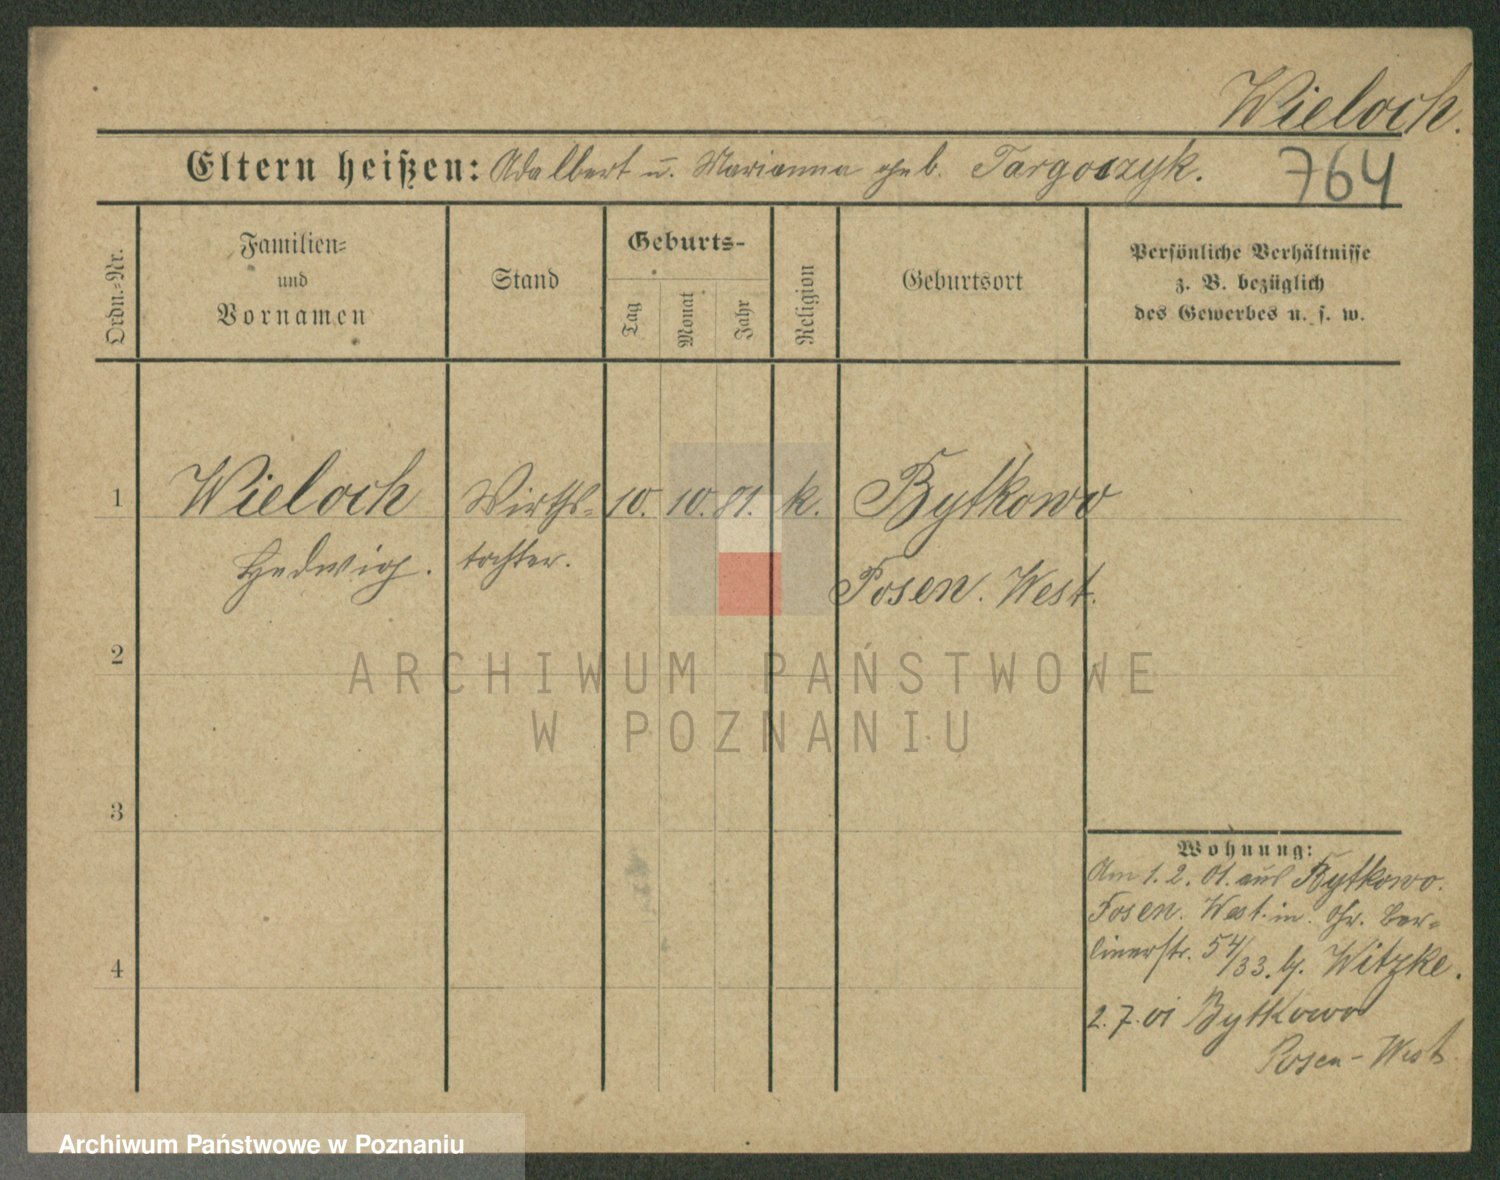 Wieloch.
Eltern heißen: Adalbert u. Marianna geb. Targoszyk.
764
Ordn.-Nr.
Familien-
und
Vornamen
Stand
Geburts-
Tag
Monat
Jahr
Religion
Geburtsort
Persönliche Verhältnisse
z. B. bezüglich
des Gewerbes u. s. w.
1 Wieloch Wirths- 10. 10. 81. k. Bytkowo
Hedwig. tochter. Posen. West.
2
ARCHIWUM PAŃSTWOWE
W POZNANIU
3
4
Wohnung:
Am 1. 2. 01. aus Bytkowo.
Posen. West. in. Gr. Ber-
linerstr. 54/33. b. Witzke.
2. 7. 01 Bytkowo
Posen-West
Archiwum Państwowe w Poznaniu